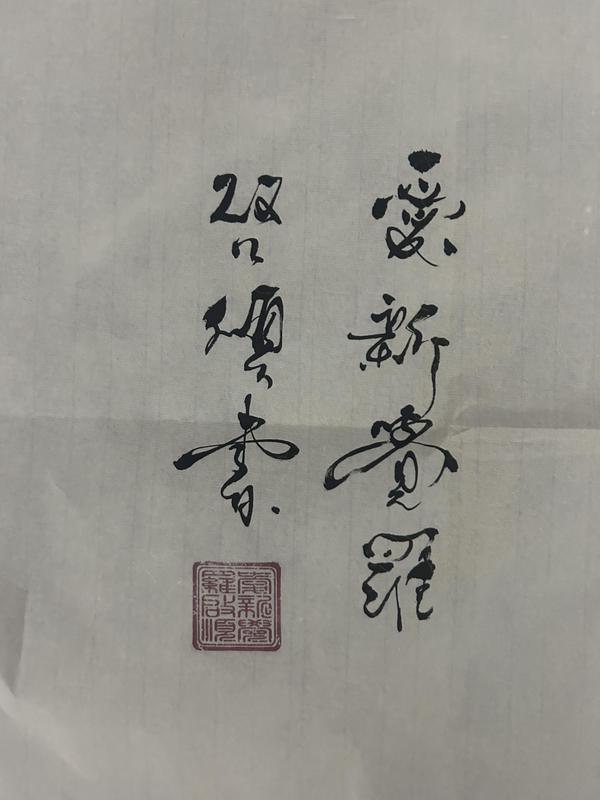 愛新覺羅
啟順書
愛新覺
羅啟順